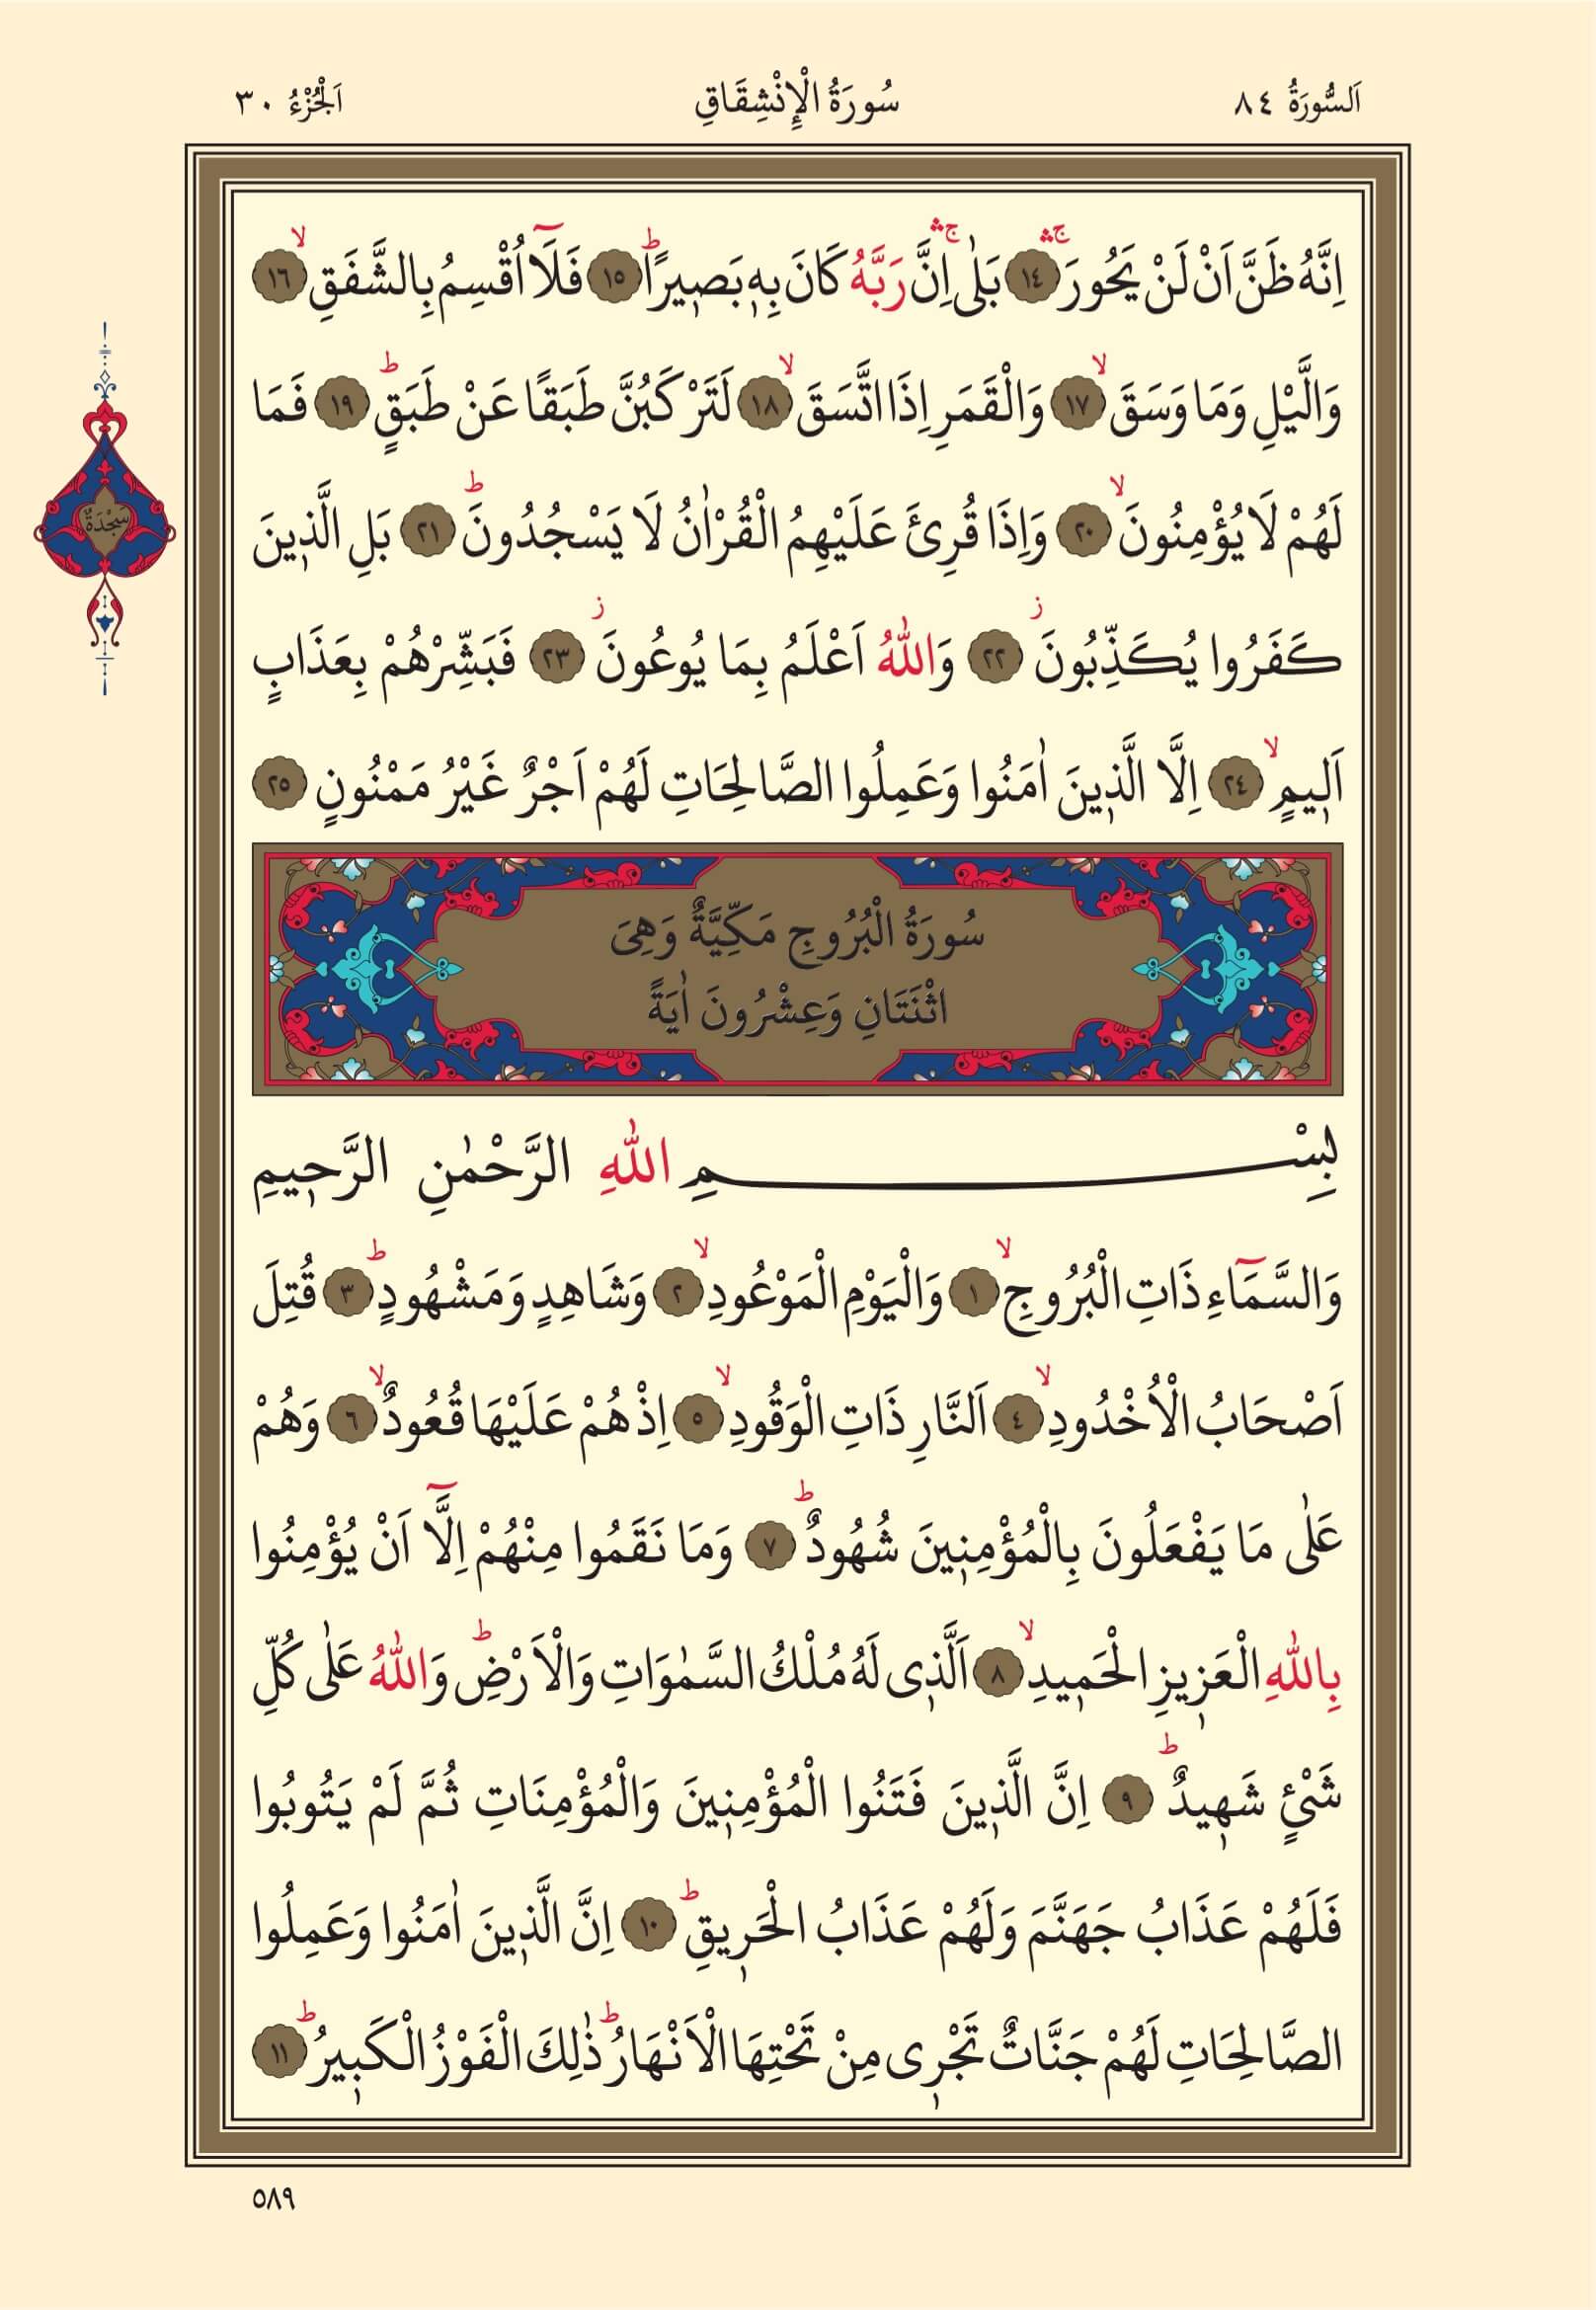 اَلسُّورَةُ ٨٤
سُورَةُ الْاِنْشِقَاقِ
اَلْجُزْءُ ٣٠
اِنَّهُ ظَنَّ اَنْ لَنْ يَحُورَۚۛ ﴿١٤﴾ بَلٰىۚۛ اِنَّ رَبَّهُ كَانَ بِه۪ بَص۪يرًاۜ ﴿١٥﴾ فَلَٓا اُقْسِمُ بِالشَّفَقِۙ ﴿١٦﴾
وَالَّيْلِ وَمَا وَسَقَۙ ﴿١٧﴾ وَالْقَمَرِ اِذَا اتَّسَقَۙ ﴿١٨﴾ لَتَرْكَبُنَّ طَبَقًا عَنْ طَبَقٍۜ ﴿١٩﴾ فَمَا
لَهُمْ لَا يُؤْمِنُونَۙ ﴿٢٠﴾ وَاِذَا قُرِئَ عَلَيْهِمُ الْقُرْاٰنُ لَا يَسْجُدُونَۜ ﴿٢١﴾ بَلِ الَّذ۪ينَ
سَجْدَةٌ
كَفَرُوا يُكَذِّبُونَۘ ﴿٢٢﴾ وَاللّٰهُ اَعْلَمُ بِمَا يُوعُونَۘ ﴿٢٣﴾ فَبَشِّرْهُمْ بِعَذَابٍ
اَل۪يمٍۙ ﴿٢٤﴾ اِلَّا الَّذ۪ينَ اٰمَنُوا وَعَمِلُوا الصَّالِحَاتِ لَهُمْ اَجْرٌ غَيْرُ مَمْنُونٍ ﴿٢٥﴾
سُورَةُ الْبُرُوجِ مَكِّيَّةٌ وَهِىَ
اثْنَتَانِ وَعِشْرُونَ اٰيَةً
بِسْمِ اللّٰهِ الرَّحْمٰنِ الرَّح۪يمِ
وَالسَّمَٓاءِ ذَاتِ الْبُرُوجِۙ ﴿١﴾ وَالْيَوْمِ الْمَوْعُودِۙ ﴿٢﴾ وَشَاهِدٍ وَمَشْهُودٍۜ ﴿٣﴾ قُتِلَ
اَصْحَابُ الْاُخْدُودِۙ ﴿٤﴾ اَلنَّارِ ذَاتِ الْوَقُودِۙ ﴿٥﴾ اِذْ هُمْ عَلَيْهَا قُعُودٌۙ ﴿٦﴾ وَهُمْ
عَلٰى مَا يَفْعَلُونَ بِالْمُؤْمِن۪ينَ شُهُودٌۜ ﴿٧﴾ وَمَا نَقَمُوا مِنْهُمْ اِلَّٓا اَنْ يُؤْمِنُوا
بِاللّٰهِ الْعَز۪يزِ الْحَم۪يدِۙ ﴿٨﴾ اَلَّذ۪ى لَهُ مُلْكُ السَّمٰوَاتِ وَالْاَرْضِۜ وَاللّٰهُ عَلٰى كُلِّ
شَىْئٍ شَه۪يدٌۜ ﴿٩﴾ اِنَّ الَّذ۪ينَ فَتَنُوا الْمُؤْمِن۪ينَ وَالْمُؤْمِنَاتِ ثُمَّ لَمْ يَتُوبُوا
فَلَهُمْ عَذَابُ جَهَنَّمَ وَلَهُمْ عَذَابُ الْحَر۪يقِۜ ﴿١٠﴾ اِنَّ الَّذ۪ينَ اٰمَنُوا وَعَمِلُوا
الصَّالِحَاتِ لَهُمْ جَنَّاتٌ تَجْر۪ى مِنْ تَحْتِهَا الْاَنْهَارُۜ ذٰلِكَ الْفَوْزُ الْكَب۪يرُۜ ﴿١١﴾
٥٨٩